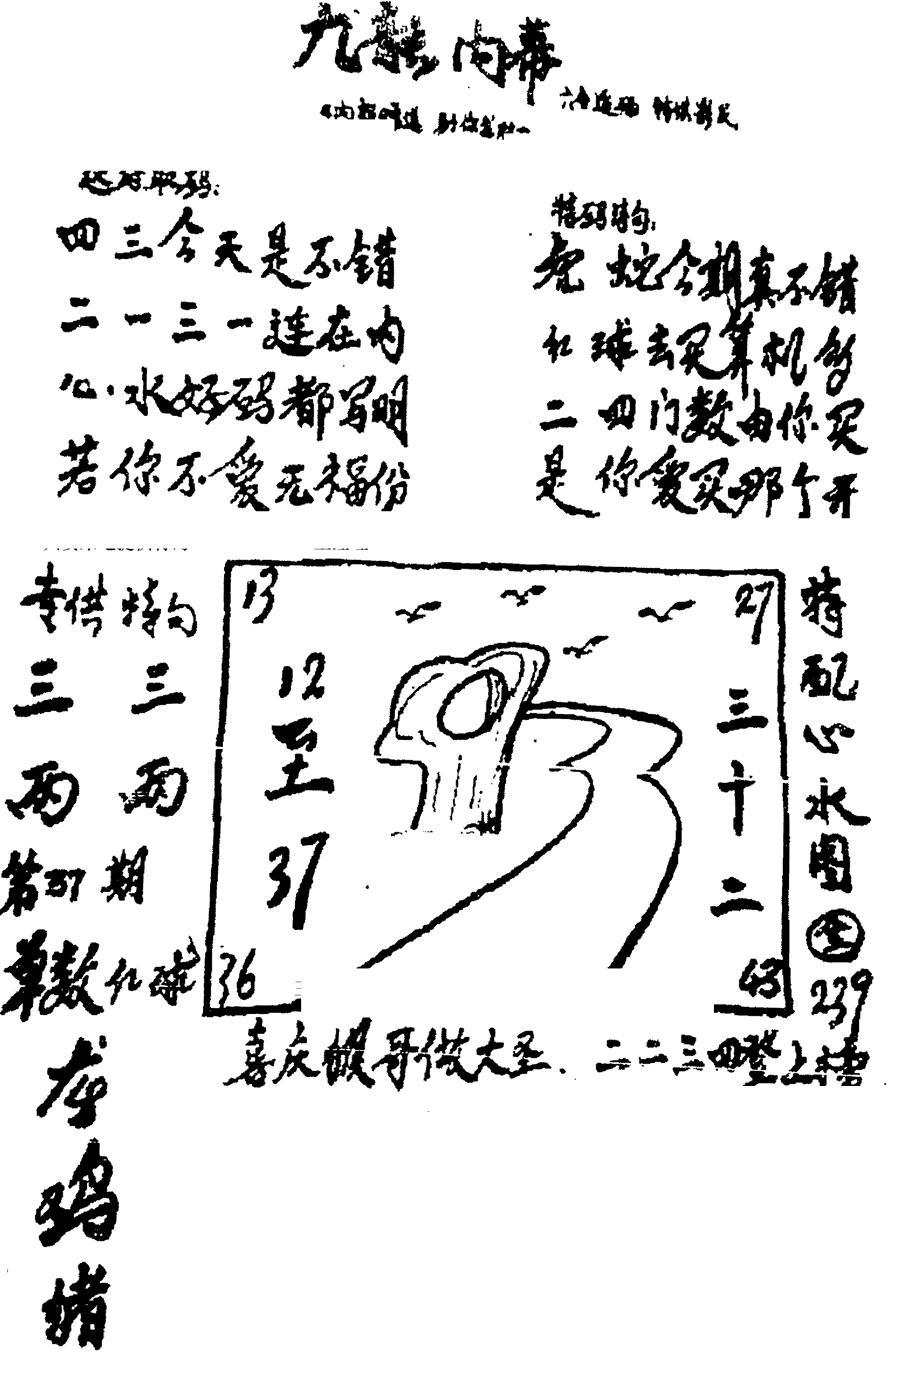 九龍内幕
六合连码 特供彩民
四三今天是不错
二一三一连在内
心水好码都写明
若你不爱无福份
特码诗句:
兔蛇今期真不错
红球去买算机灵
二四门数由你买
是你爱买那个开
专供特句
三三
两两
第37期
单数红球
龙
鸡
猪
13
27
12
至
37
三
十
二
36
43
特
配
心
水
图
239
喜庆猴哥做大圣.二二三四登上楼